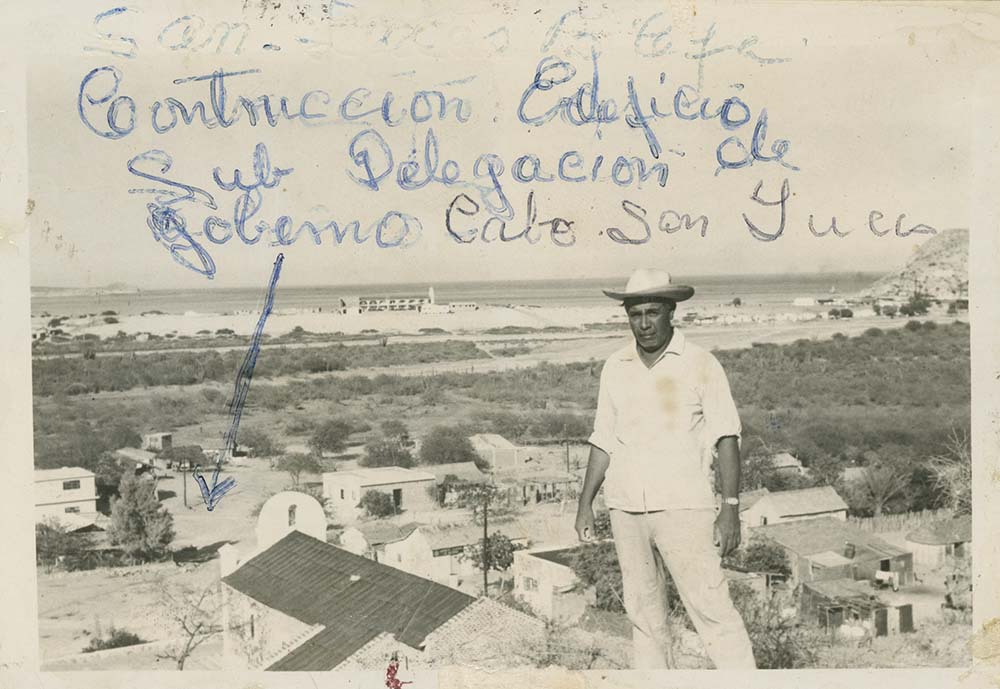 San. Lucas
Contrucción. Edeficio
Sub Délegación de
gobierno Cabo San Lucas